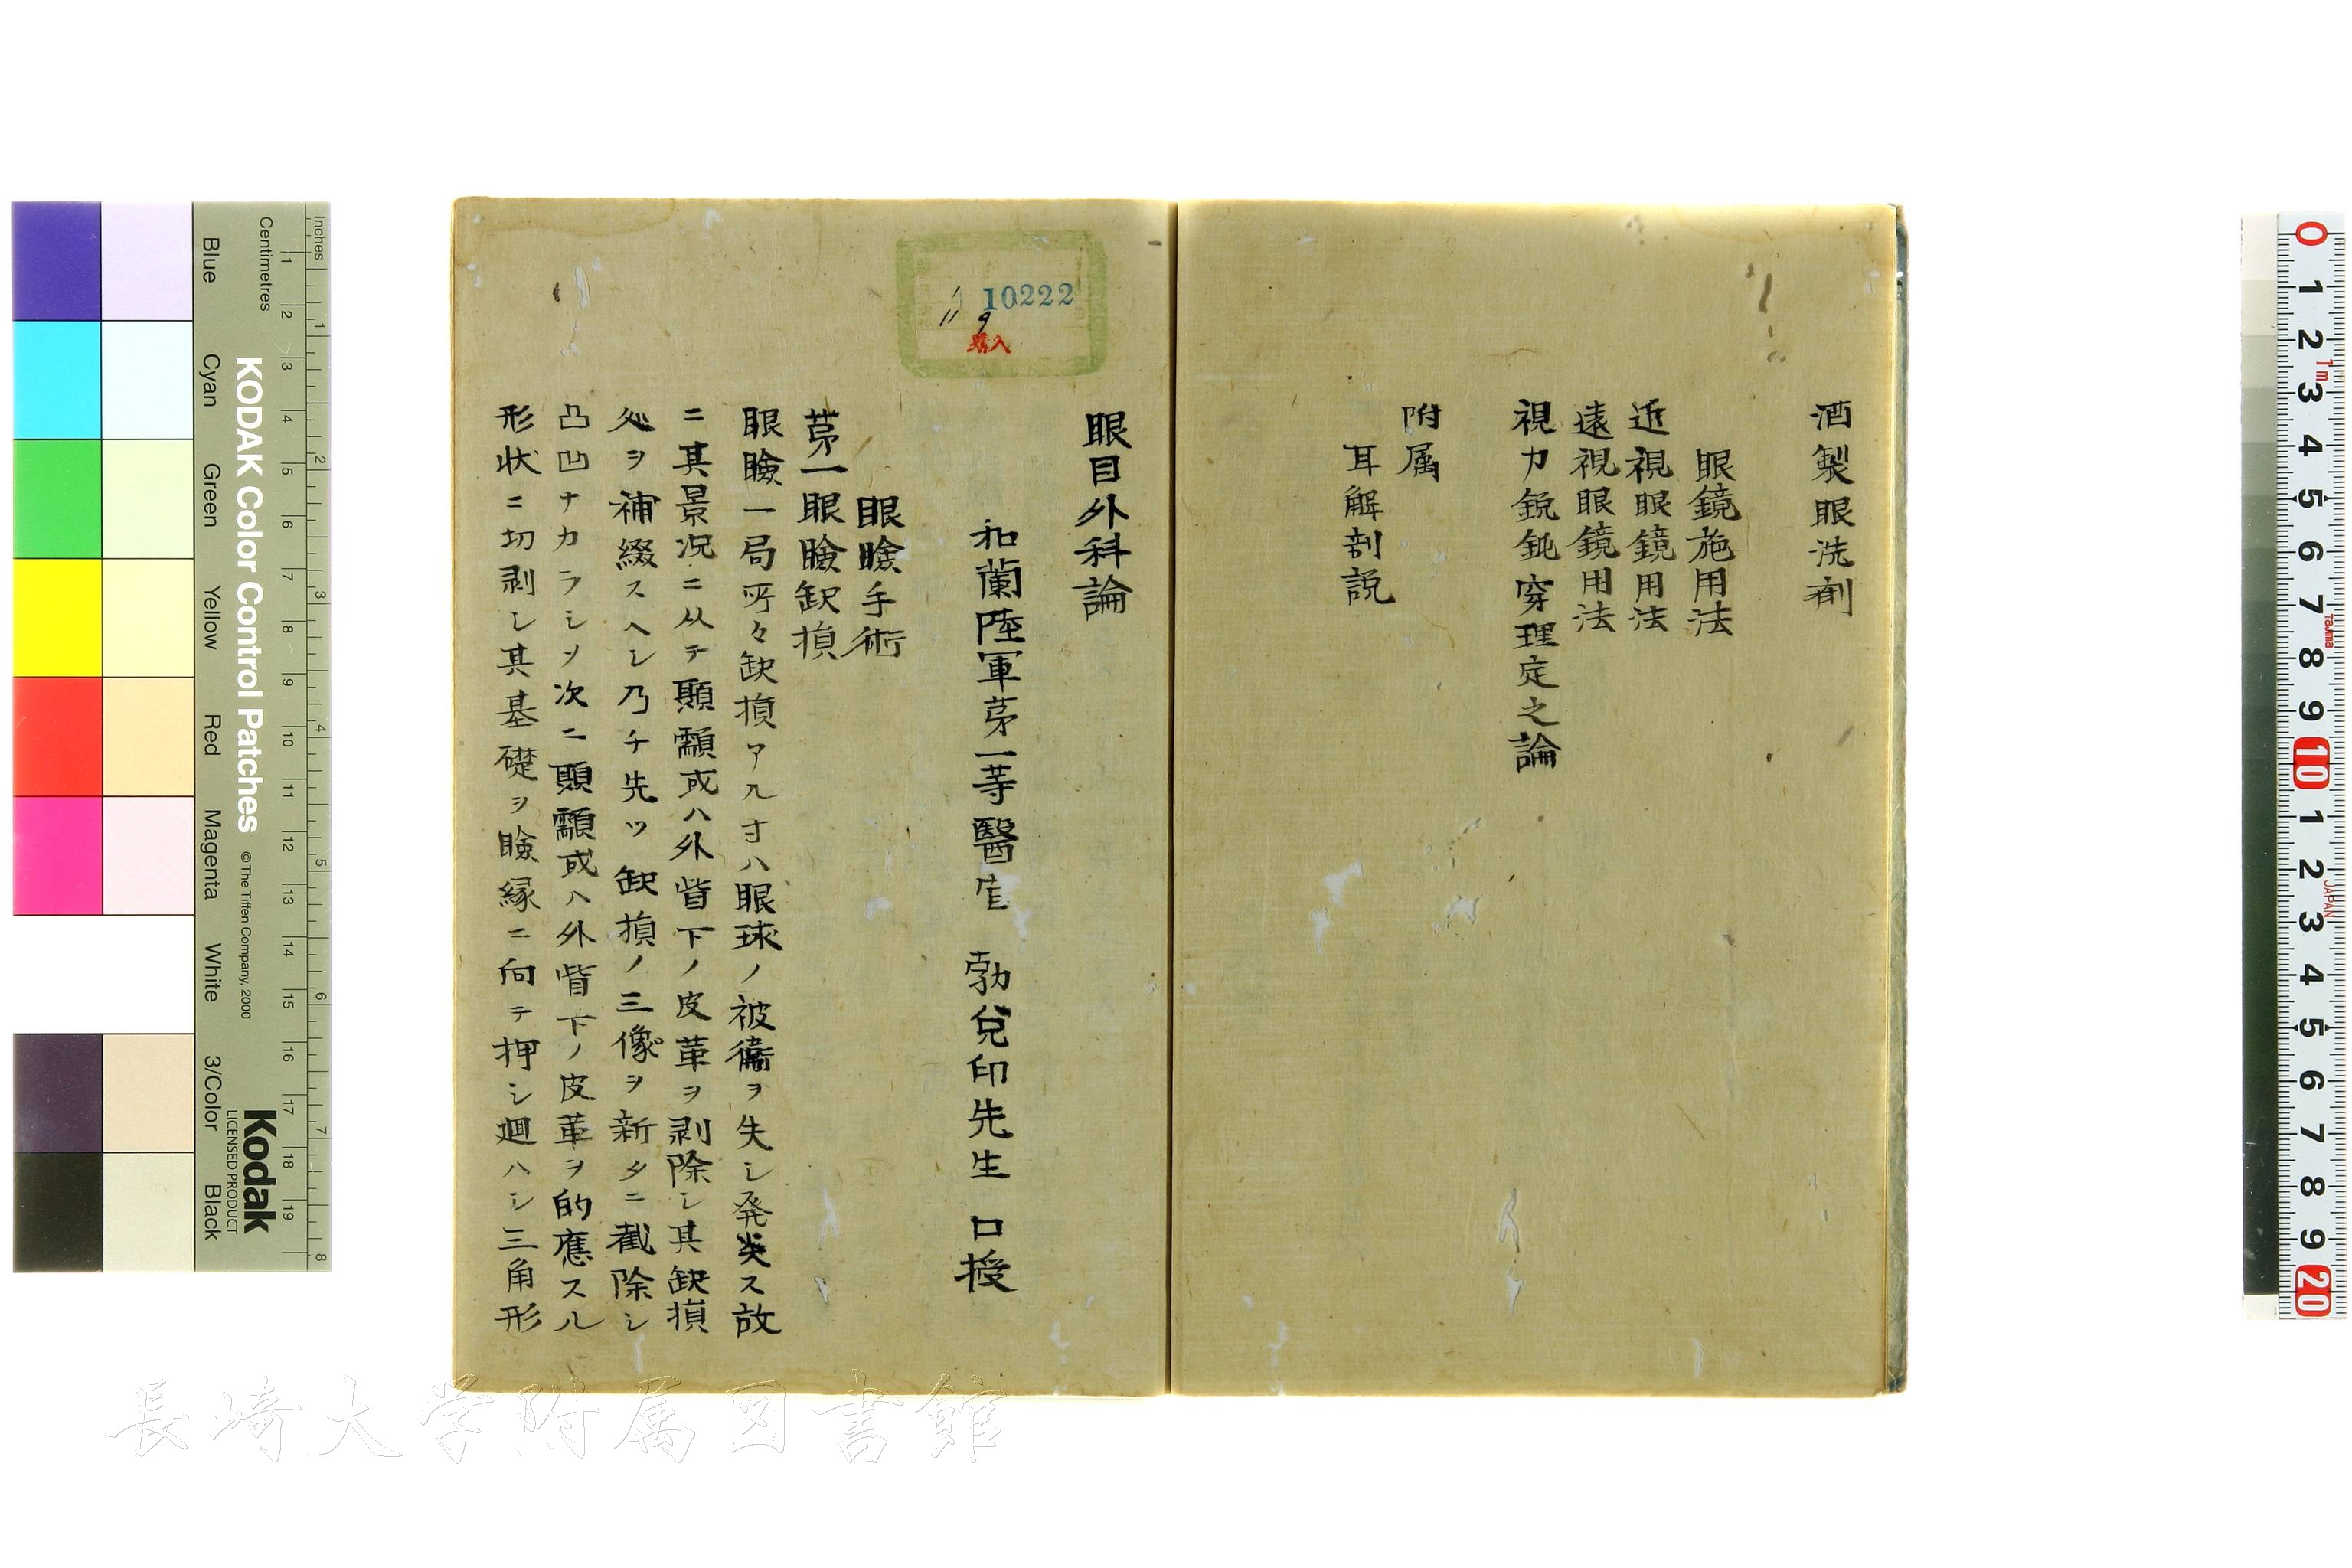 酒製眼洗剤
眼鏡施用法
近視眼鏡用法
遠視眼鏡用法
視力鋭鈍穿理定之論
附属
耳解剖説
10222
11 9
購入
眼目外科論
和蘭陸軍苐一等醫官 勃兌印先生 口授
眼瞼手術
苐一眼瞼缺損
眼瞼一局所々缺損アル寸ハ眼球ノ被衞ヲ失シ発炎ス故
ニ其景况ニ从テ顳顬或ハ外眥下ノ皮革ヲ剥除シ其缺損
処ヲ補綴スヘシ乃チ先ツ缺損ノ三像ヲ新タニ截除シ
凸凹ナカラシメ次ニ顳顬或ハ外眥下ノ皮革ヲ的應スル
形状ニ切剥シ其基礎ヲ瞼縁ニ向テ押シ廻ハシ三角形
長崎大学附属図書館
Inches
Centimetres
KODAK Color Control Patches
© The Tiffen Company, 2000
Kodak
LICENSED PRODUCT
Blue
Cyan
Green
Yellow
Red
Magenta
White
3/Color
Black
1 2 3 4 5 6 7 8
1 2 3 4 5 6 7 8 9 10 11 12 13 14 15 16 17 18 19
0 1 2 3 4 5 6 7 8 9 10 1 2 3 4 5 6 7 8 9 20
1m
Tajima
JAPAN